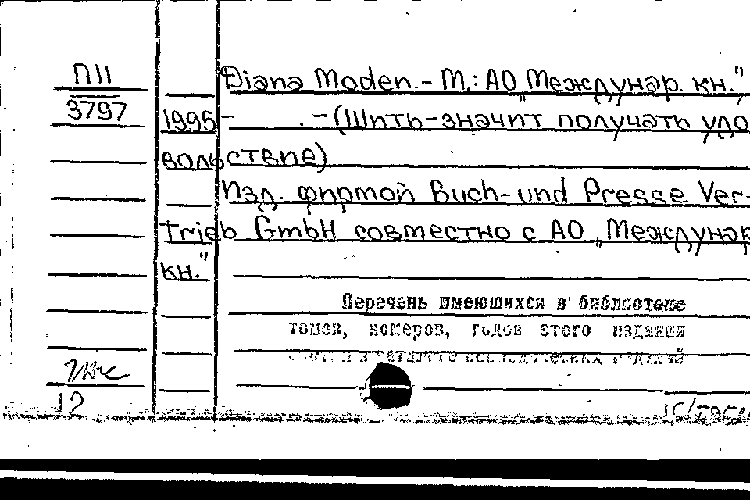 П11
3797
Diana Moden. - М.: АО „Междунар. кн."
1995 - . - (Шить-значит получать удо
вольствие)
Изд. фирмой Buch- und Presse Ver-
trieb GmbH совместно с АО „Междунар
кн."
Перечень имеющихся в библиотеке
томов, номеров, годов этого издания
12